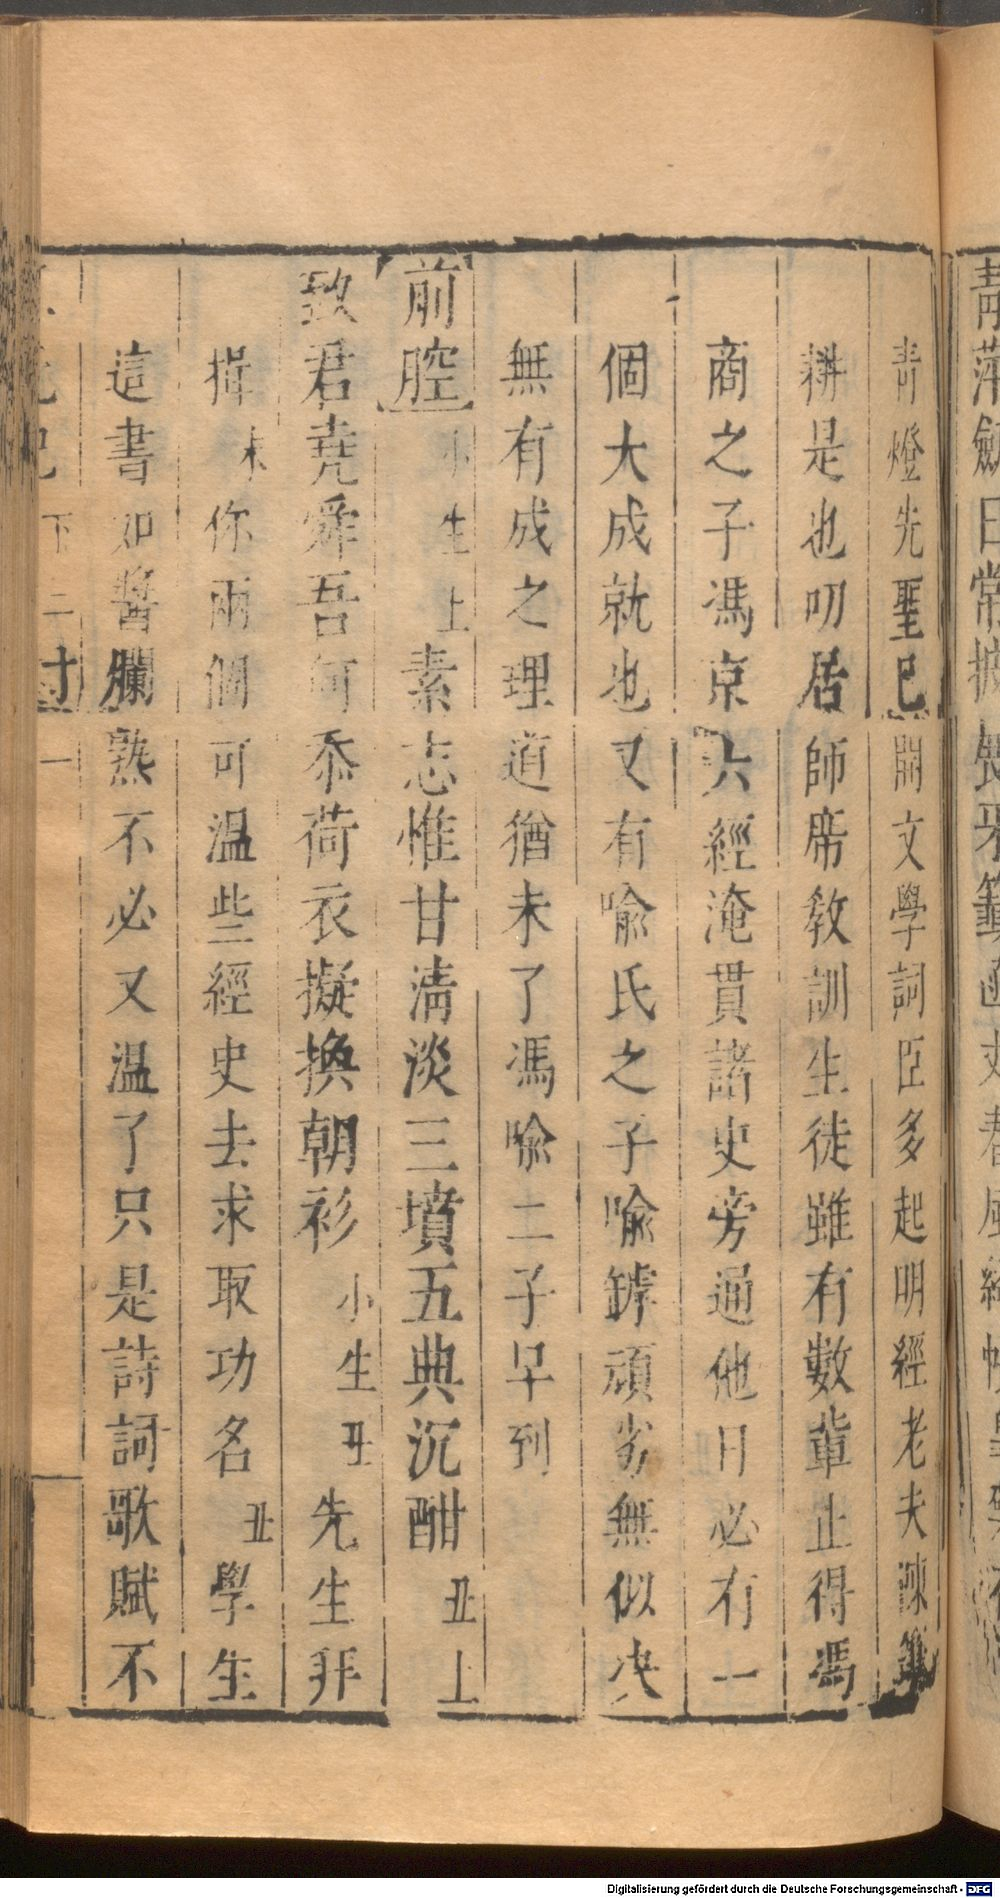 青燈先聖巳開文學詞臣多起明經老夫陳
耕是也叨居師席教訓生徒雖有數輩止得馮
商之子馮京六經淹貫諸史旁通他日必有一
個大成就也又有喻氏之子喻罅頑劣無似决
無有成之理道猶未了馮喻二子早到
前腔 小生上 素志惟甘清淡三墳五典沉酣 丑上
致君堯舜吾何忝荷衣擬換朝衫 小生丑 先生拜
揖 末 你兩個可温些經史去求取功名 丑 學生
這書如醬爛熟不必又温了只是詩詞歌賦不
下二 一
Digitalisierung gefördert durch die Deutsche Forschungsgemeinschaft - DFG